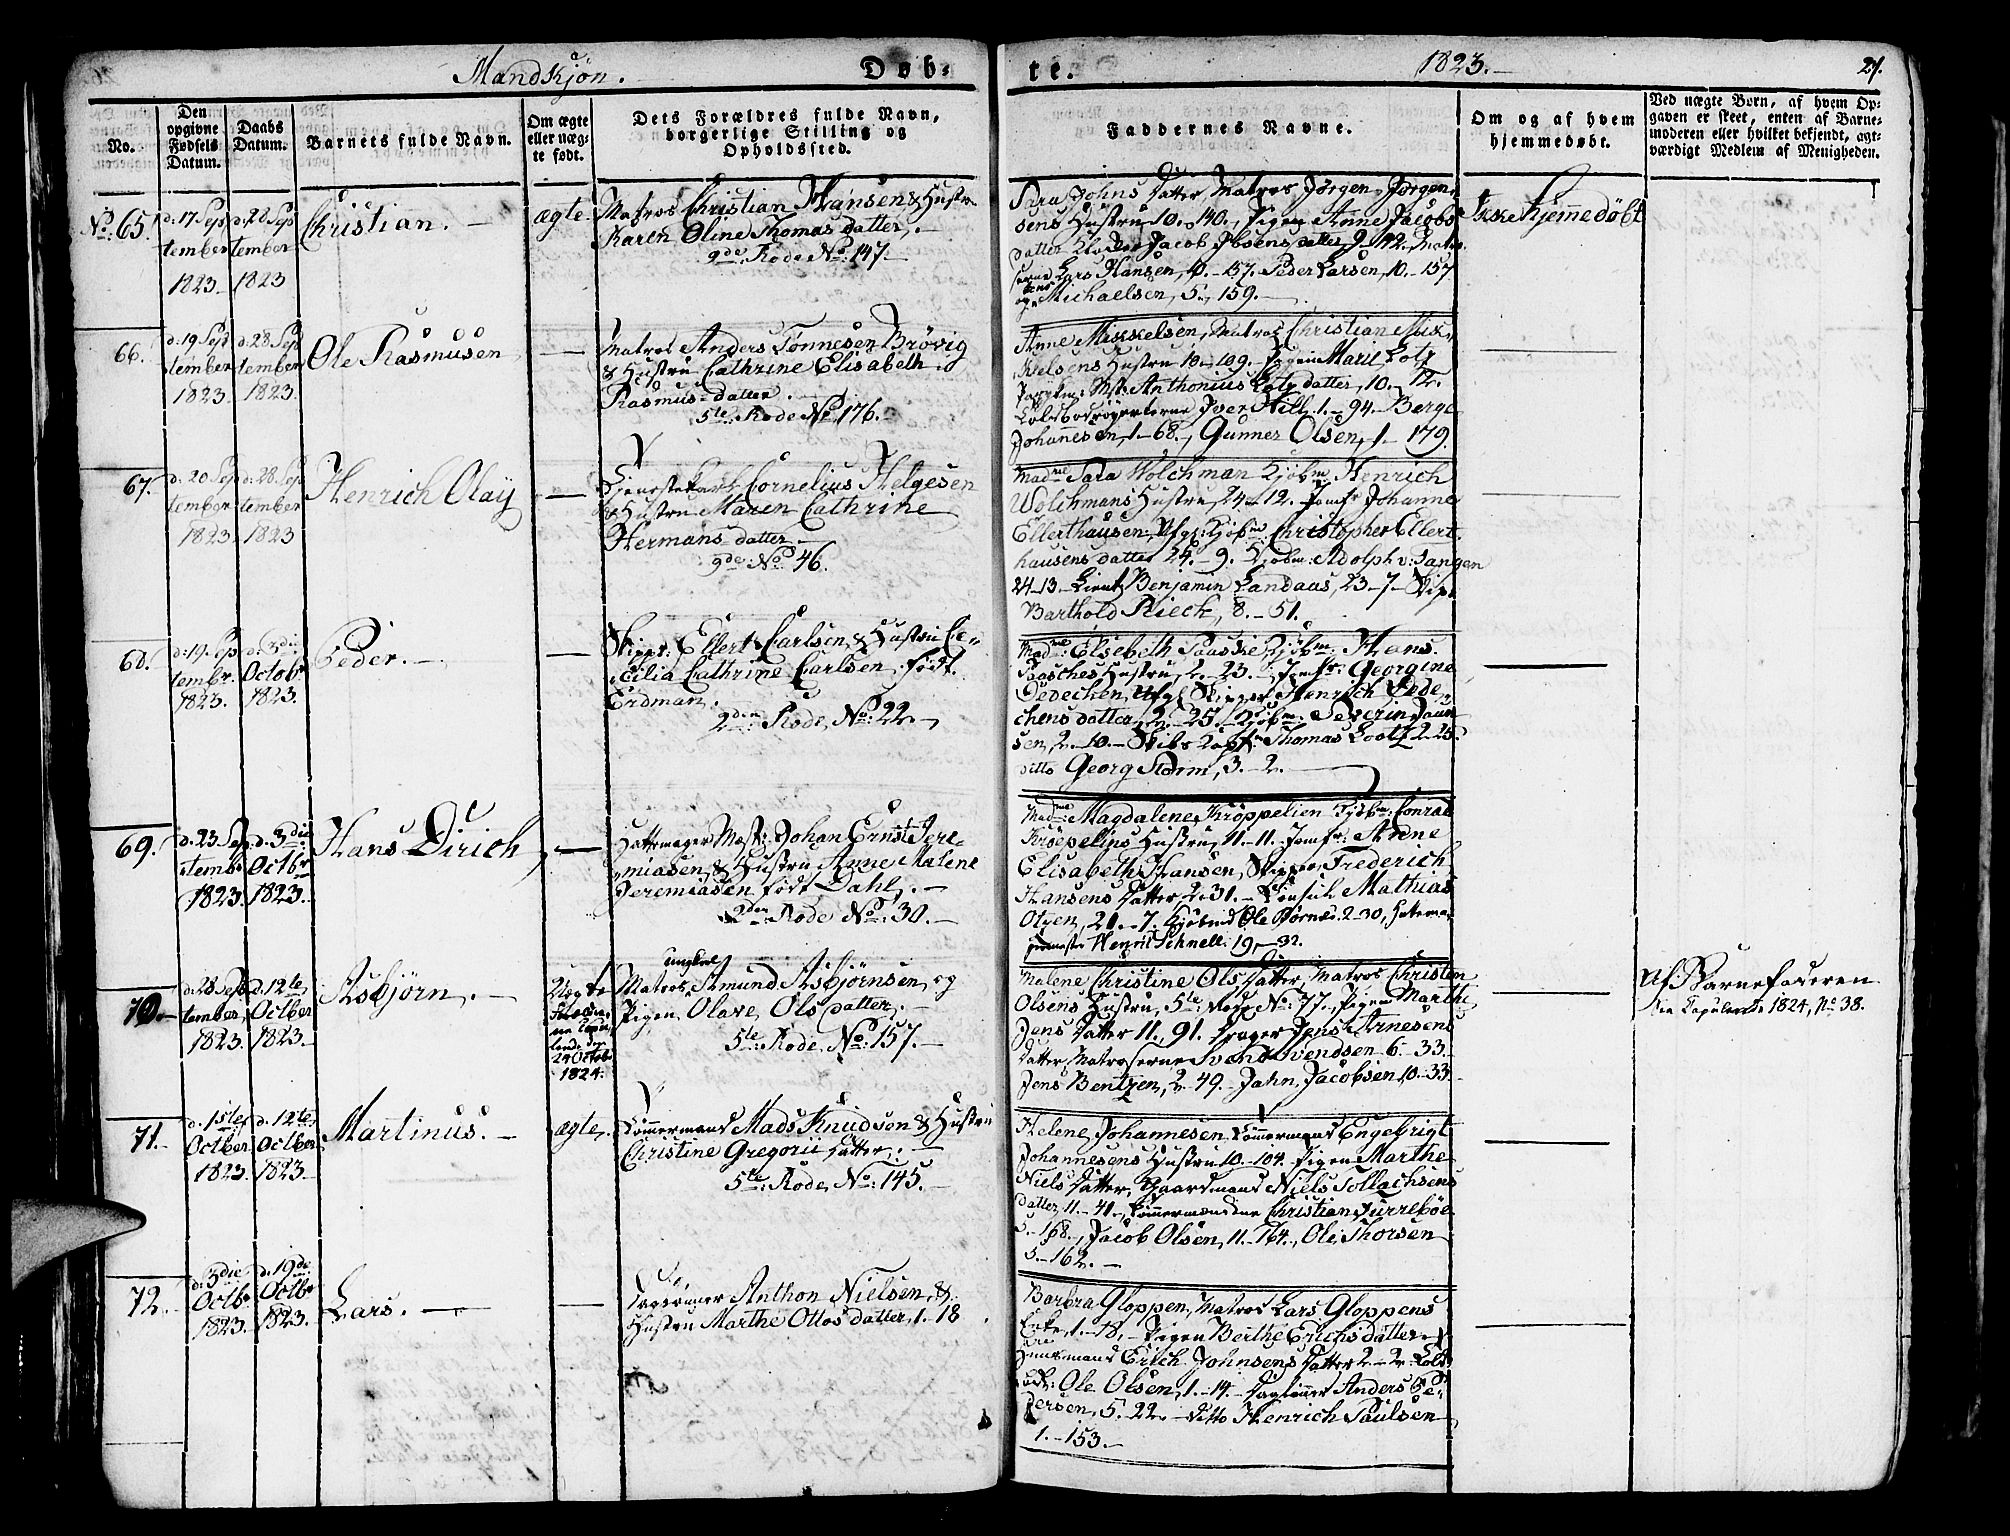 Mandkjøn.
Døb-
te.
1823.-
27.
No.
Den
opgivne
Fødsels
Datum.
Daabs
Datum.
Barnets fulde Navn.
Om ægte
eller uæg-
te født.
Dets Forældres fulde Navn,
borgerlige Stilling og
Opholdssted.
Faddernes Navne.
Om og af hvem
hjemmedøbt.
Ved uægte Børn, af hvem Op-
gaven er skeet, enten af Barne-
moderen eller hvilket bekjendt, agt-
værdigt Medlem af Menigheden.
No. 65.
d: 17 Sep
tember
1823
d. 28 Sep
tember
1823
Christian. -
ægte.
Matros Christian Hansen & Hustr.
Karen Oline Thomas datter. -
9de Rode No: 147.-
Sara Johns Datter, Matros Jørgen Jørgen-
sens Hustru 10.-140., Pigen Anne Jacobs
datter, Jacob Ibsens datter, 9-142, Matro-
serne Lars Hansen, 10.-157. Peder Larsen, 10.-157
og Michaelsen, 5., 159.-
Ikke hjemmedøbt
66.
d. 19 Sept
tember
1823.
d. 28 Sep
tember
1823.
Ole Rasmusen
-
Matros Anders Tonnesen Brøvig
& Hustru Cathrine Elisabeth
Rasmus-datter.
5te. Rode No 176.-
Anne Mikkelsen, Matros Christian Mik-
kelsens Hustru 10.-109. Pigen Marie Lotz
Anthonius Lotz datter, 10.-12.
Iver Hill. 1.-94.- Berge
Johannesen, 1-68., Gunner Olsen, 1-179.
67.
d: 20 Sep
tember
1823
d. 28 Sep
tember
1823
Henrich Olaÿ
-
Tjenestekarl Cornelius Helgesen
& Hustru Maren Cathrine
Hermans datter.-
9de No 46.
Madme Sara Wolchman Kjøbm Henrich
Wolchmans Hustru, 24-12. Jomfr Johanne
Ellerthausen, Afg. Kjøbm: Christopher Ellert-
hausens datter 24.-9. Kjøbm: Adolph v: Tangen
24-13. Lieut Benjamin Landaas, 23-7- Skip.
Barthold Rieck, 8.-51.
68.
d: 19. Sep
tembr.
1823.
d. 3die
Octobr
1823.
Peder.-
-
Skippr: Ellert Carlsen & Hustru Ce-
cilia Cathrine Carlsen, født
Erdman.
2den Rode, No: 22.-
Madme: Elsebeth Paaske, Kjøbm: Hans
Paaches Hustru, 2.-23. Jomfr: Georgine
Dedechen, Afg: Skipper Henrich Dede-
chens datter, 2.-25. Kjøbm: Severin Jaan-
sen, 2.-10.- Skibs Capt: Thomas Lootz 2-25.
ditto Georg Storm, 3.-2.
69.
d. 23 Sep
tembr
1823.
d. 3die
Octbr
1823.
Hans Dirich
-
Hattemager Mest: Johan Ernst Jere-
miasen & Hustru Anne Malene
Jeremiasen født Dahl.-
2den Rode No: 30.-
Madme: Magdalene Krøppelien Conrad
Krøepeliens Hustru, 11-11. Jomfr: Anne
Elisabeth Hansen, Skipper Frederich
Hansens Datter 2-31.- Consul Mathias
Otzen, 20.-7. Ole Børnes. 2-30, Hattema-
germester Henrik Schnell. 19,-32.
70.-
d. 28 Sept
tember
1823.
d. 12te
Octber
1823.-
Asbjørn. -
Uægte
24 Octob
1824.
ungkarl
Matros Amund Asbjørnsen, og
Pigen Olave Ols datter.-
5te Rode No: 157.-
Malene Christine Ols Datter, Matros Christen
Olsens Hustru, 5te Rode No: 77.- Pigen Marthe
Jens Datter 11. 91. Jens Arnesens
Datter, Matroserne Svend Svendsen 6.-33.-
Jens Bentzen, 2.-49.- Jahn Jacobsen, 10.-33.
Af Barnefaderen
Copulerede 1824, No 38.
71.-
d. 1ste
Octber
1823.
d. 12te
Octber
1823.-
Martinus. -
ægte.
Tømmermand Mads Knudsen & Hustru
Christine Gregorii datter.-
5te: Rode, No: 145.-
Helene Johannesen, Tømmermand Engebrigt
Johannesens Hustru 10.-104. Pigen Marthe
Niels Datter, Gaardmand Niels Tollachsens
datter, 11.-41., Tømmermændene Christian Turrebøe
5.-168., Jacob Olsen, 11.-164., Ole Thorsen
5.-162.-
72.
d: 3die
Octbr
1823.
d. 19de
Octbr
1823.
Lars. -
-
Dagløner Anthon Nielsen, &
Hustru Marthe Ottos datter, 1.-18.
Barbra Gloppen, Matros Lars Gloppens
Enke, 1.-18,- Pigen Berthe Erichs datter,
Huusmand Erich Johnsens Datter 2.-2.
Ole Olsen, 1.-14.- Dagløner Anders Pe-
dersen, 5.-22.- ditto Henrich Paulsen
1.-153.-